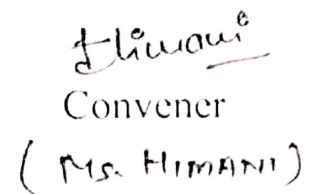 Himani
Convener
( Ms. HIMANI )